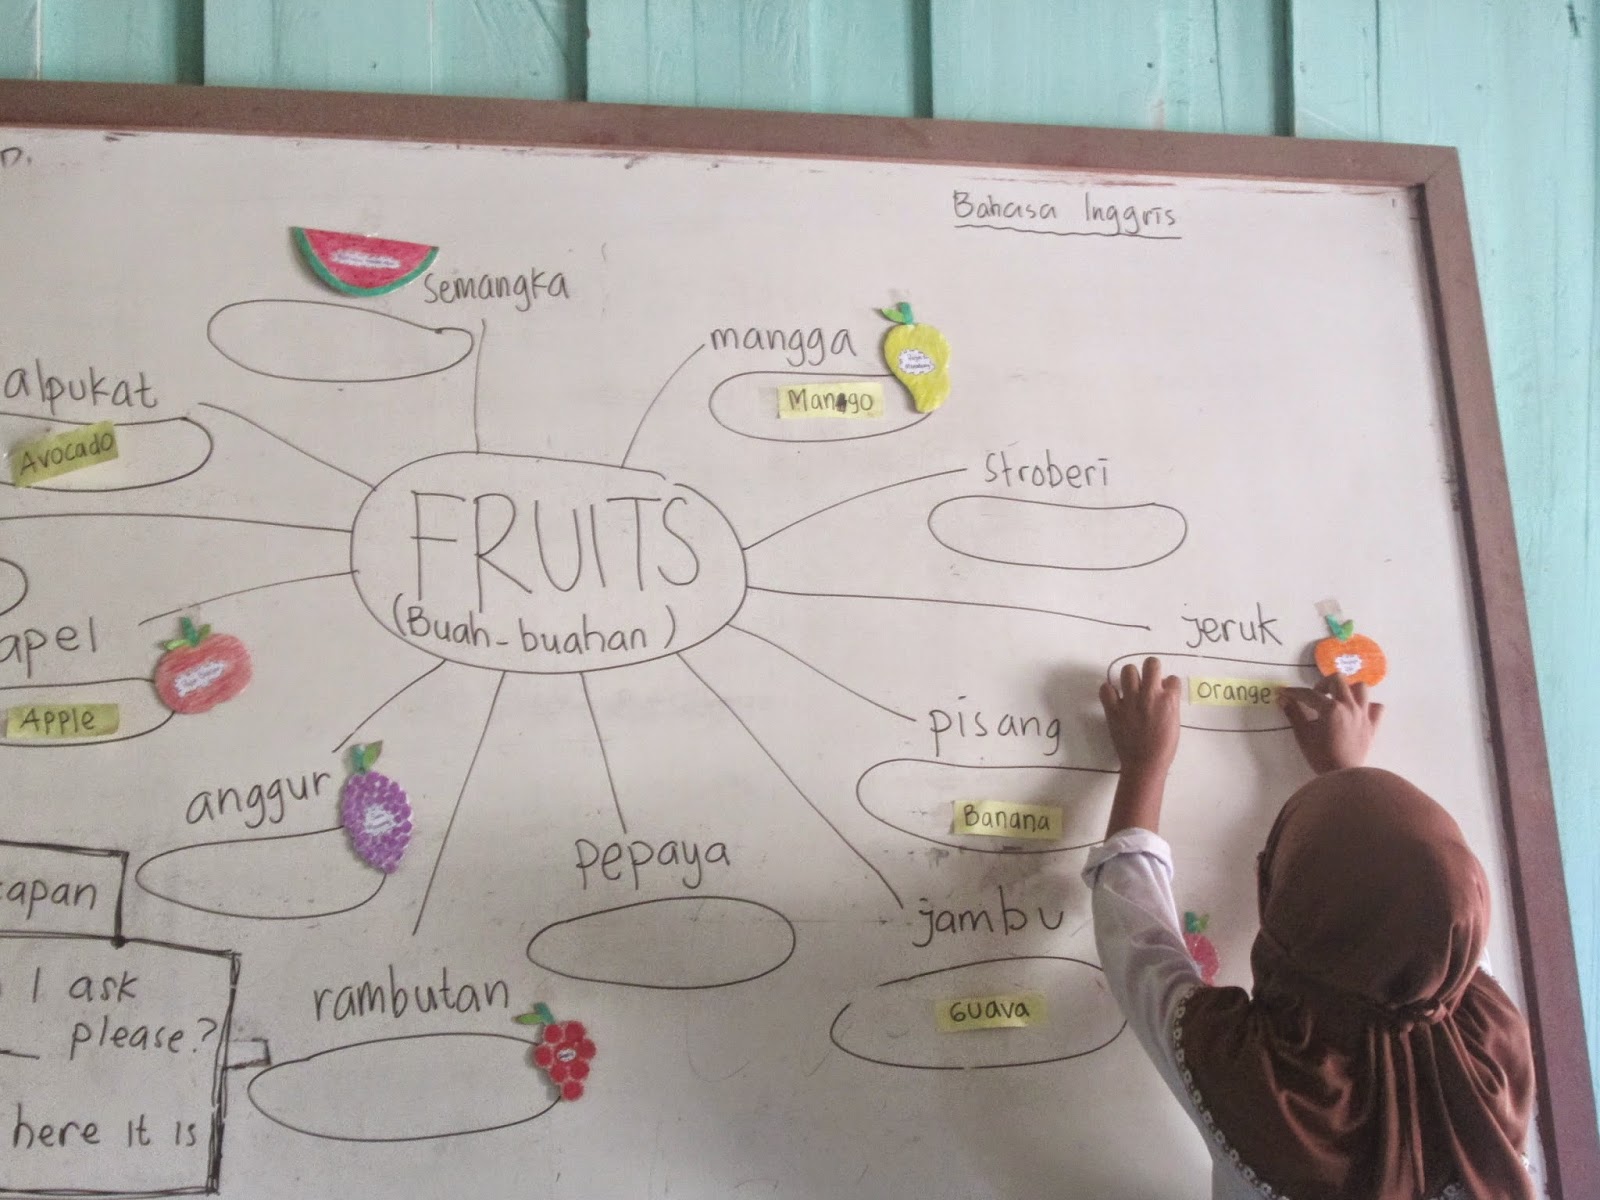 Bahasa Inggris
semangka
mangga
Mango
alpukat
Avocado
stroberi
FRUITS
(Buah-buahan)
jeruk
Orange
apel
Apple
pisang
Banana
anggur
pepaya
jambu
Guava
rambutan
capan
I ask
please?
here it is